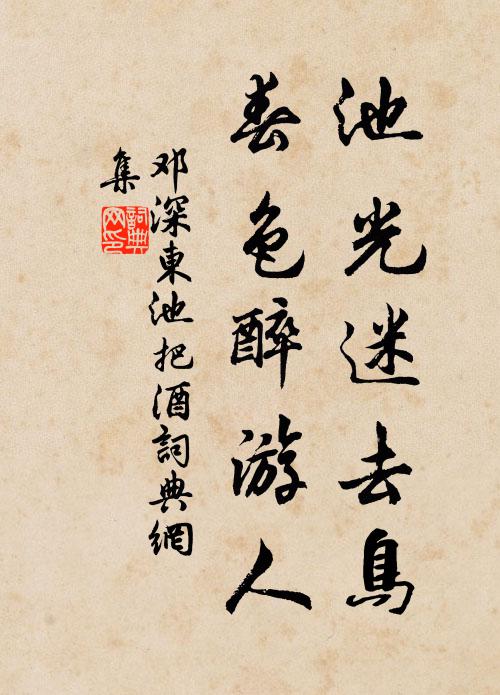 池光迷去鳥
春色醉游人
邓深東池把酒詞典網
集
詞典
网印